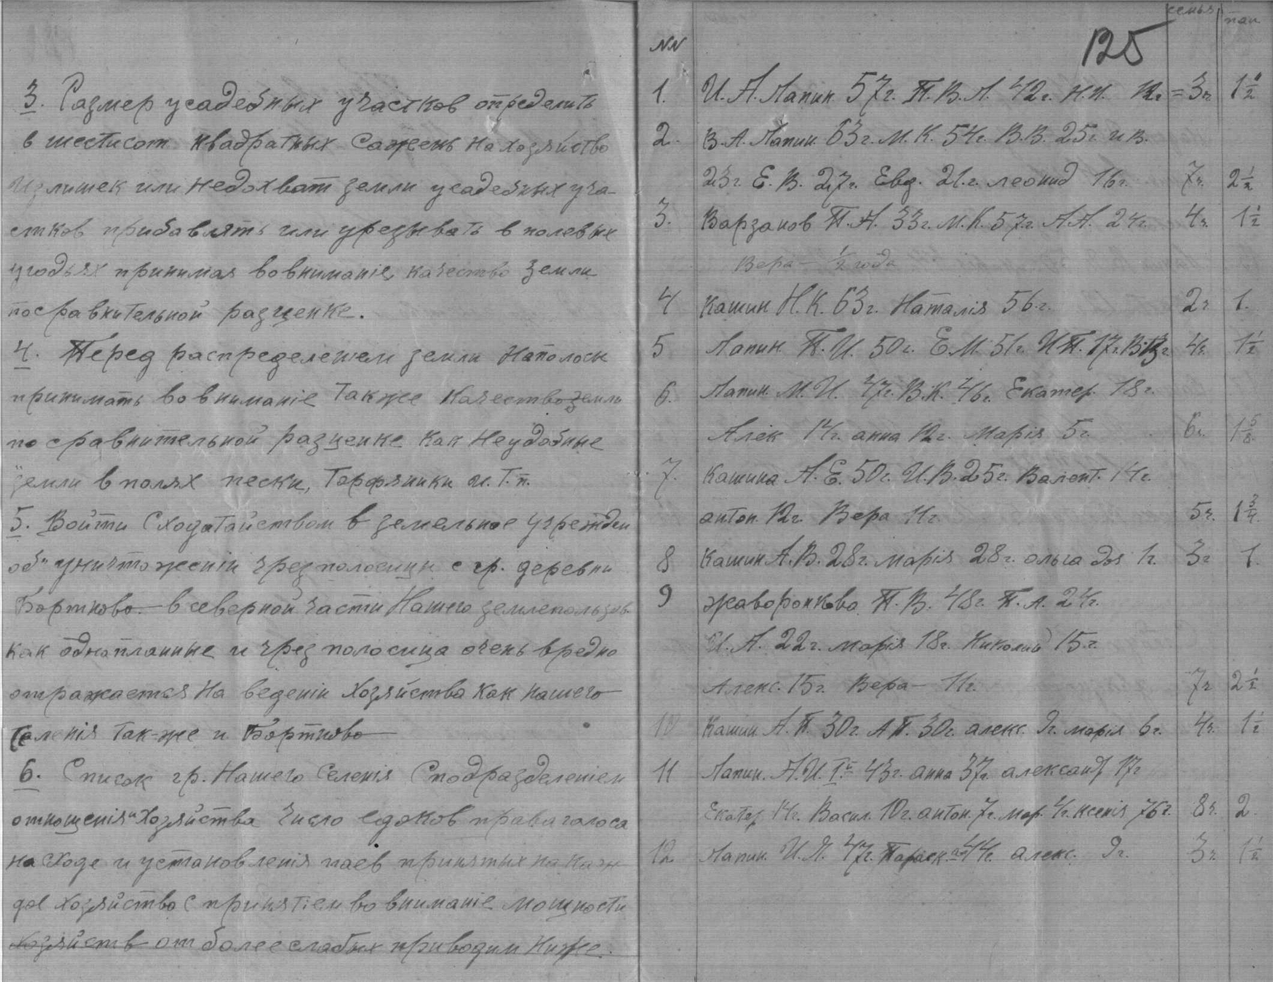 3. Размер усадебных участков определить
в шестисот квадратных сажень на хозяйство
излишек или недохват земли усадебных уча-
стков прибавлять или урезывать в полевых
угодьях принимая во вниманіе качество земли
по сравнительной разценке.
4. Перед распределением земли на полосы
принимать во вниманіе также качество земли
по сравнительной разценке как неудобные
земли в полях пески, торфяники и.т.п.
5. Войти с ходатайством в земельное учрежден
об уничтоженіи чрезполосицы с гр. деревни
Бортново в северной части нашего землепользов
как однопланные и чрезполосица очень вредно
отражается на веденіи хозяйства как нашего
селенія так-же и Бортново
6. Список гр. нашего селенія с подразделеніем
отношенія хозяйства число едоков права голоса
на сходе и установленія паев принятых на каж
дое хозяйство с принятіем во вниманіе мощности
хозяйств от более слабых приводим ниже.
125
NN семья пан
1. И. А. Лапин 57г. П. В. Л. 42г. Н.И. 12г = 3ч 1 1/2
2. В. А. Лапин 63г. М. К. 54г. В. В. 25г. и В.
23г Е. В. 27г. Евд. 21.г. леонид 16г. 7ч 2 1/2
3. Варзанов П. А. 33г. М. К. 57г. А. А. 24г. 4ч 1 1/2
Вера — 1/2 года
4 Кашин Н. К. 63г. Наталія 56г. 2ч 1.
5 Лапин П. И. 50г. Е. М. 51г. И. П. 17г. В. 13г 4ч 1 1/2
6. Лапин М. И. 47г. В. К. 46г. Екатер. 18г.
Алек 14г. анна 12г. Марія 5г. 6ч. 1 5/8
7. Кашина А. Е. 50г. И. В. 25г. Валент. 14г.
антон 12г. Вера 11г. 5ч. 1 3/4
8 Кашин А. В. 28г. марія 28г. ольга 1г. 3ч 1.
9 жаворонково П. В. 48г. П. А. 24г.
И. А. 22г. марія 18г. Николай 15г.
Алекс. 15г. Вера — 11г. 7ч 2 1/2
10 Кашин А. П 30г. А П. 30г. алекс. 9г. марія 6г. 4ч. 1 1/2
11 Лапин. А. И 1й 43г. анна 37г. александ 17г
Екатер 14г. Васил. 10г. антон. 7г. мар 4г. ксенія 76г. 8ч. 2
12 Лапин. И. Я. 47г. Параск. 44г. алекс. 9г. 3ч 1 1/2